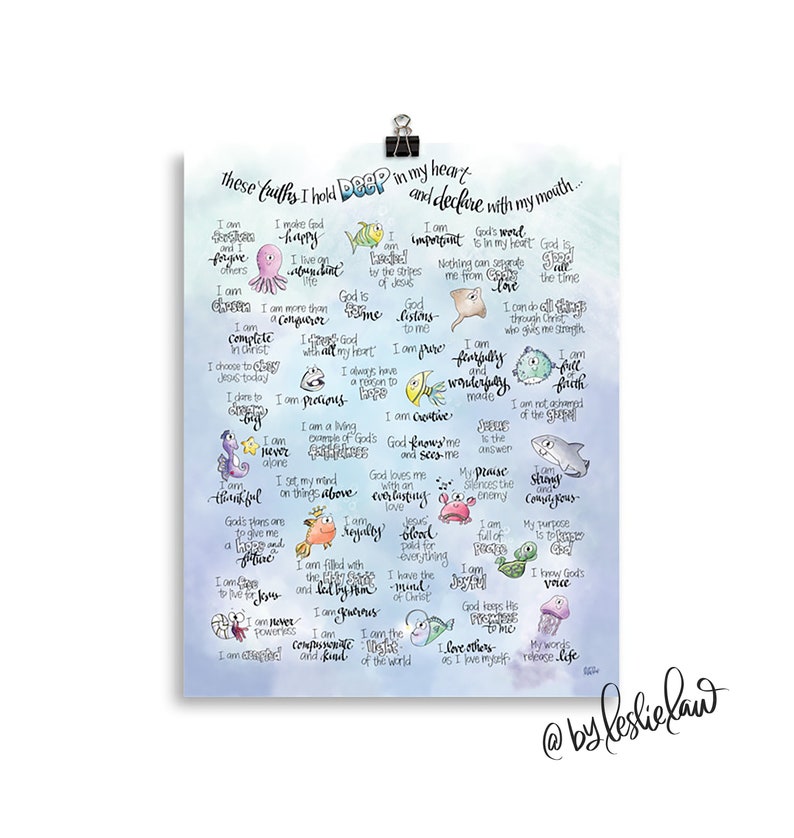 These truths I hold DEEP in my heart
and declare with my mouth...
I am
forgiven
and I
forgive
others
I make God
happy
I live an
abundant
life
I
am
healed
by the stripes
of Jesus
I am
important
God's word
is in my heart
God is
good
all
the time
Nothing can separate
me from God's
love
I am
chosen
I am more than
a conqueror
God is
for me
God
listens
to me
I can do all things
through Christ
who gives me strength
I am
complete
in Christ
I trust God
with all my heart
I am pure
I am
fearfully
and
wonderfully
made
I am
full
of
faith
I choose to obey
Jesus today
I am precious
I always have
a reason to
hope
I dare to
dream
big
I am creative
I am not ashamed
of the gospel
I am
never
alone
I am a living
example of God's
faithfulness
God knows me
and sees me
Jesus
is the
answer
I am
strong
and
courageous
I am
thankful
I set my mind
on things above
God loves me
with an
everlasting
love
My praise
silences the
enemy
God's plans are
to give me
a hope and
a
future
I am
royalty
Jesus'
blood
paid for
everything
I am
full of
peace
My purpose
is to know
God
I am free
to live for Jesus
I am filled with
the Holy Spirit
and led by Him
I have the
mind
of Christ
I am
joyful
I know God's
voice
I am never
powerless
I am generous
God keeps His
promises
to me
I am accepted
I am
compassionate
and kind
I am the
light
of the world
I love others
as I love myself
My words
release life
@byleslielaw